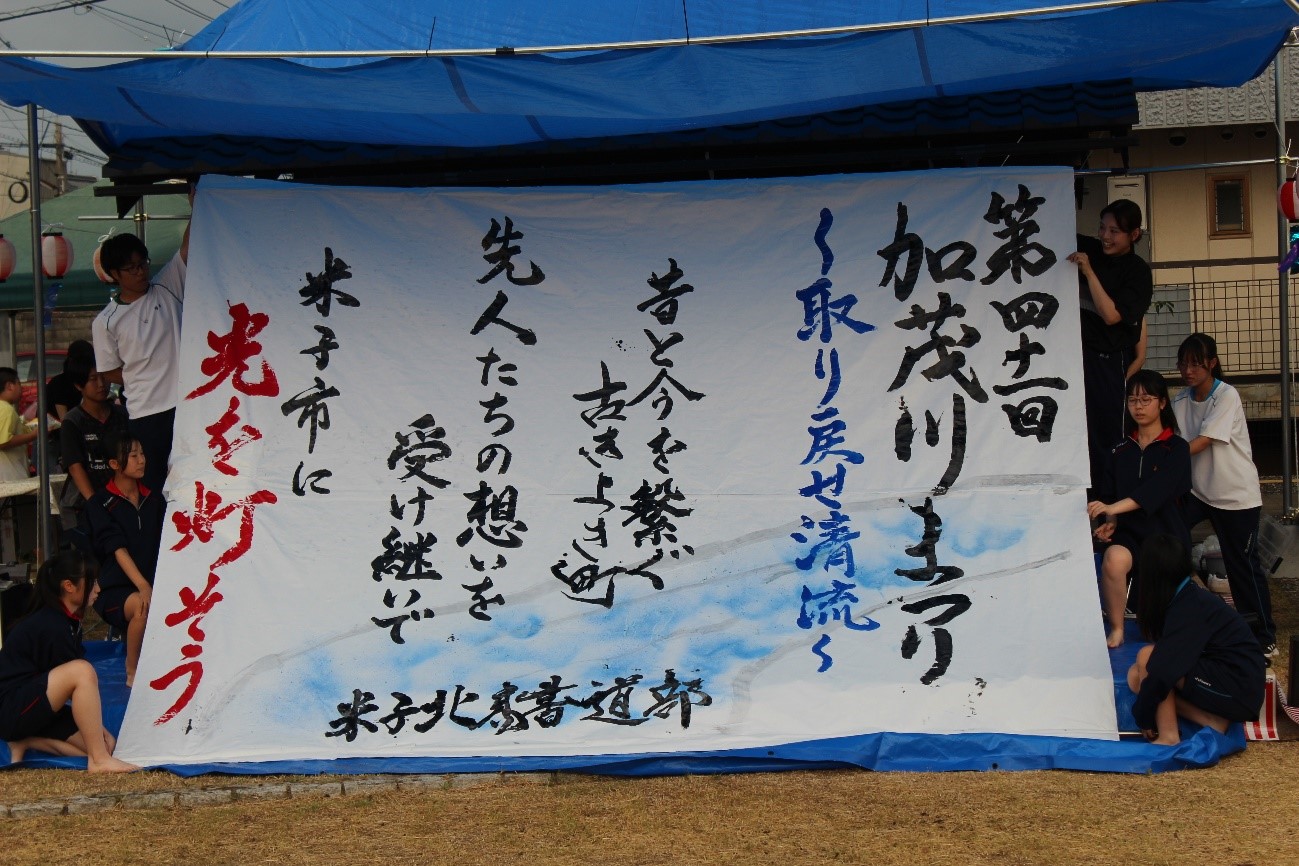 第四十一回
加茂川まつり
～取り戻せ清流～
昔と今を繋ぐ
古きよき町
先人たちの想いを
受け継いで
米子市に
光を灯そう
米子北高書道部